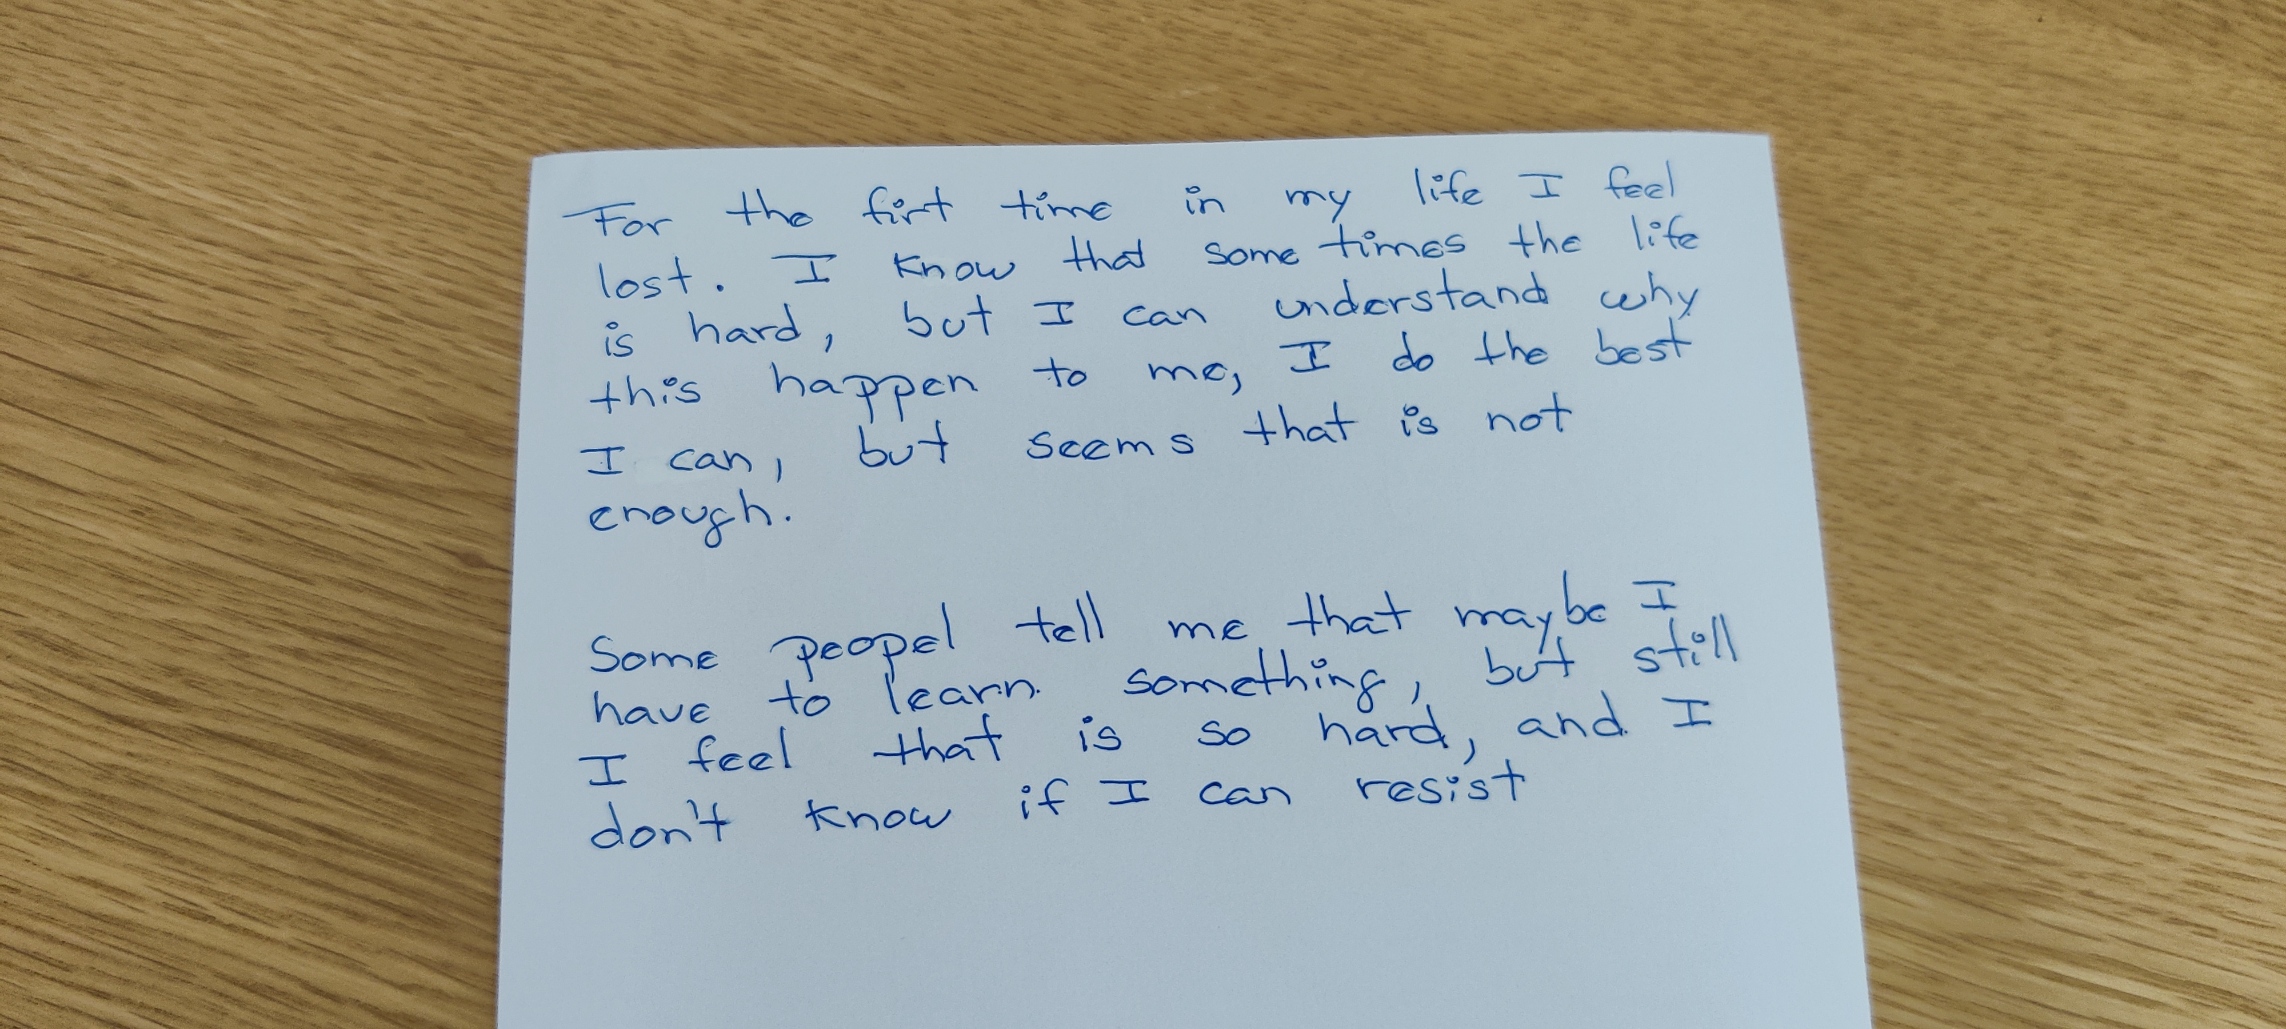 For the firt time in my life I feel
lost. I know that some times the life
is hard, but I can understand why
this happen to me, I do the best
I can, but seems that is not
enough.
Some peopel tell me that maybe I
have to learn something, but still
I feel that is so hard, and I
don't know if I can resist